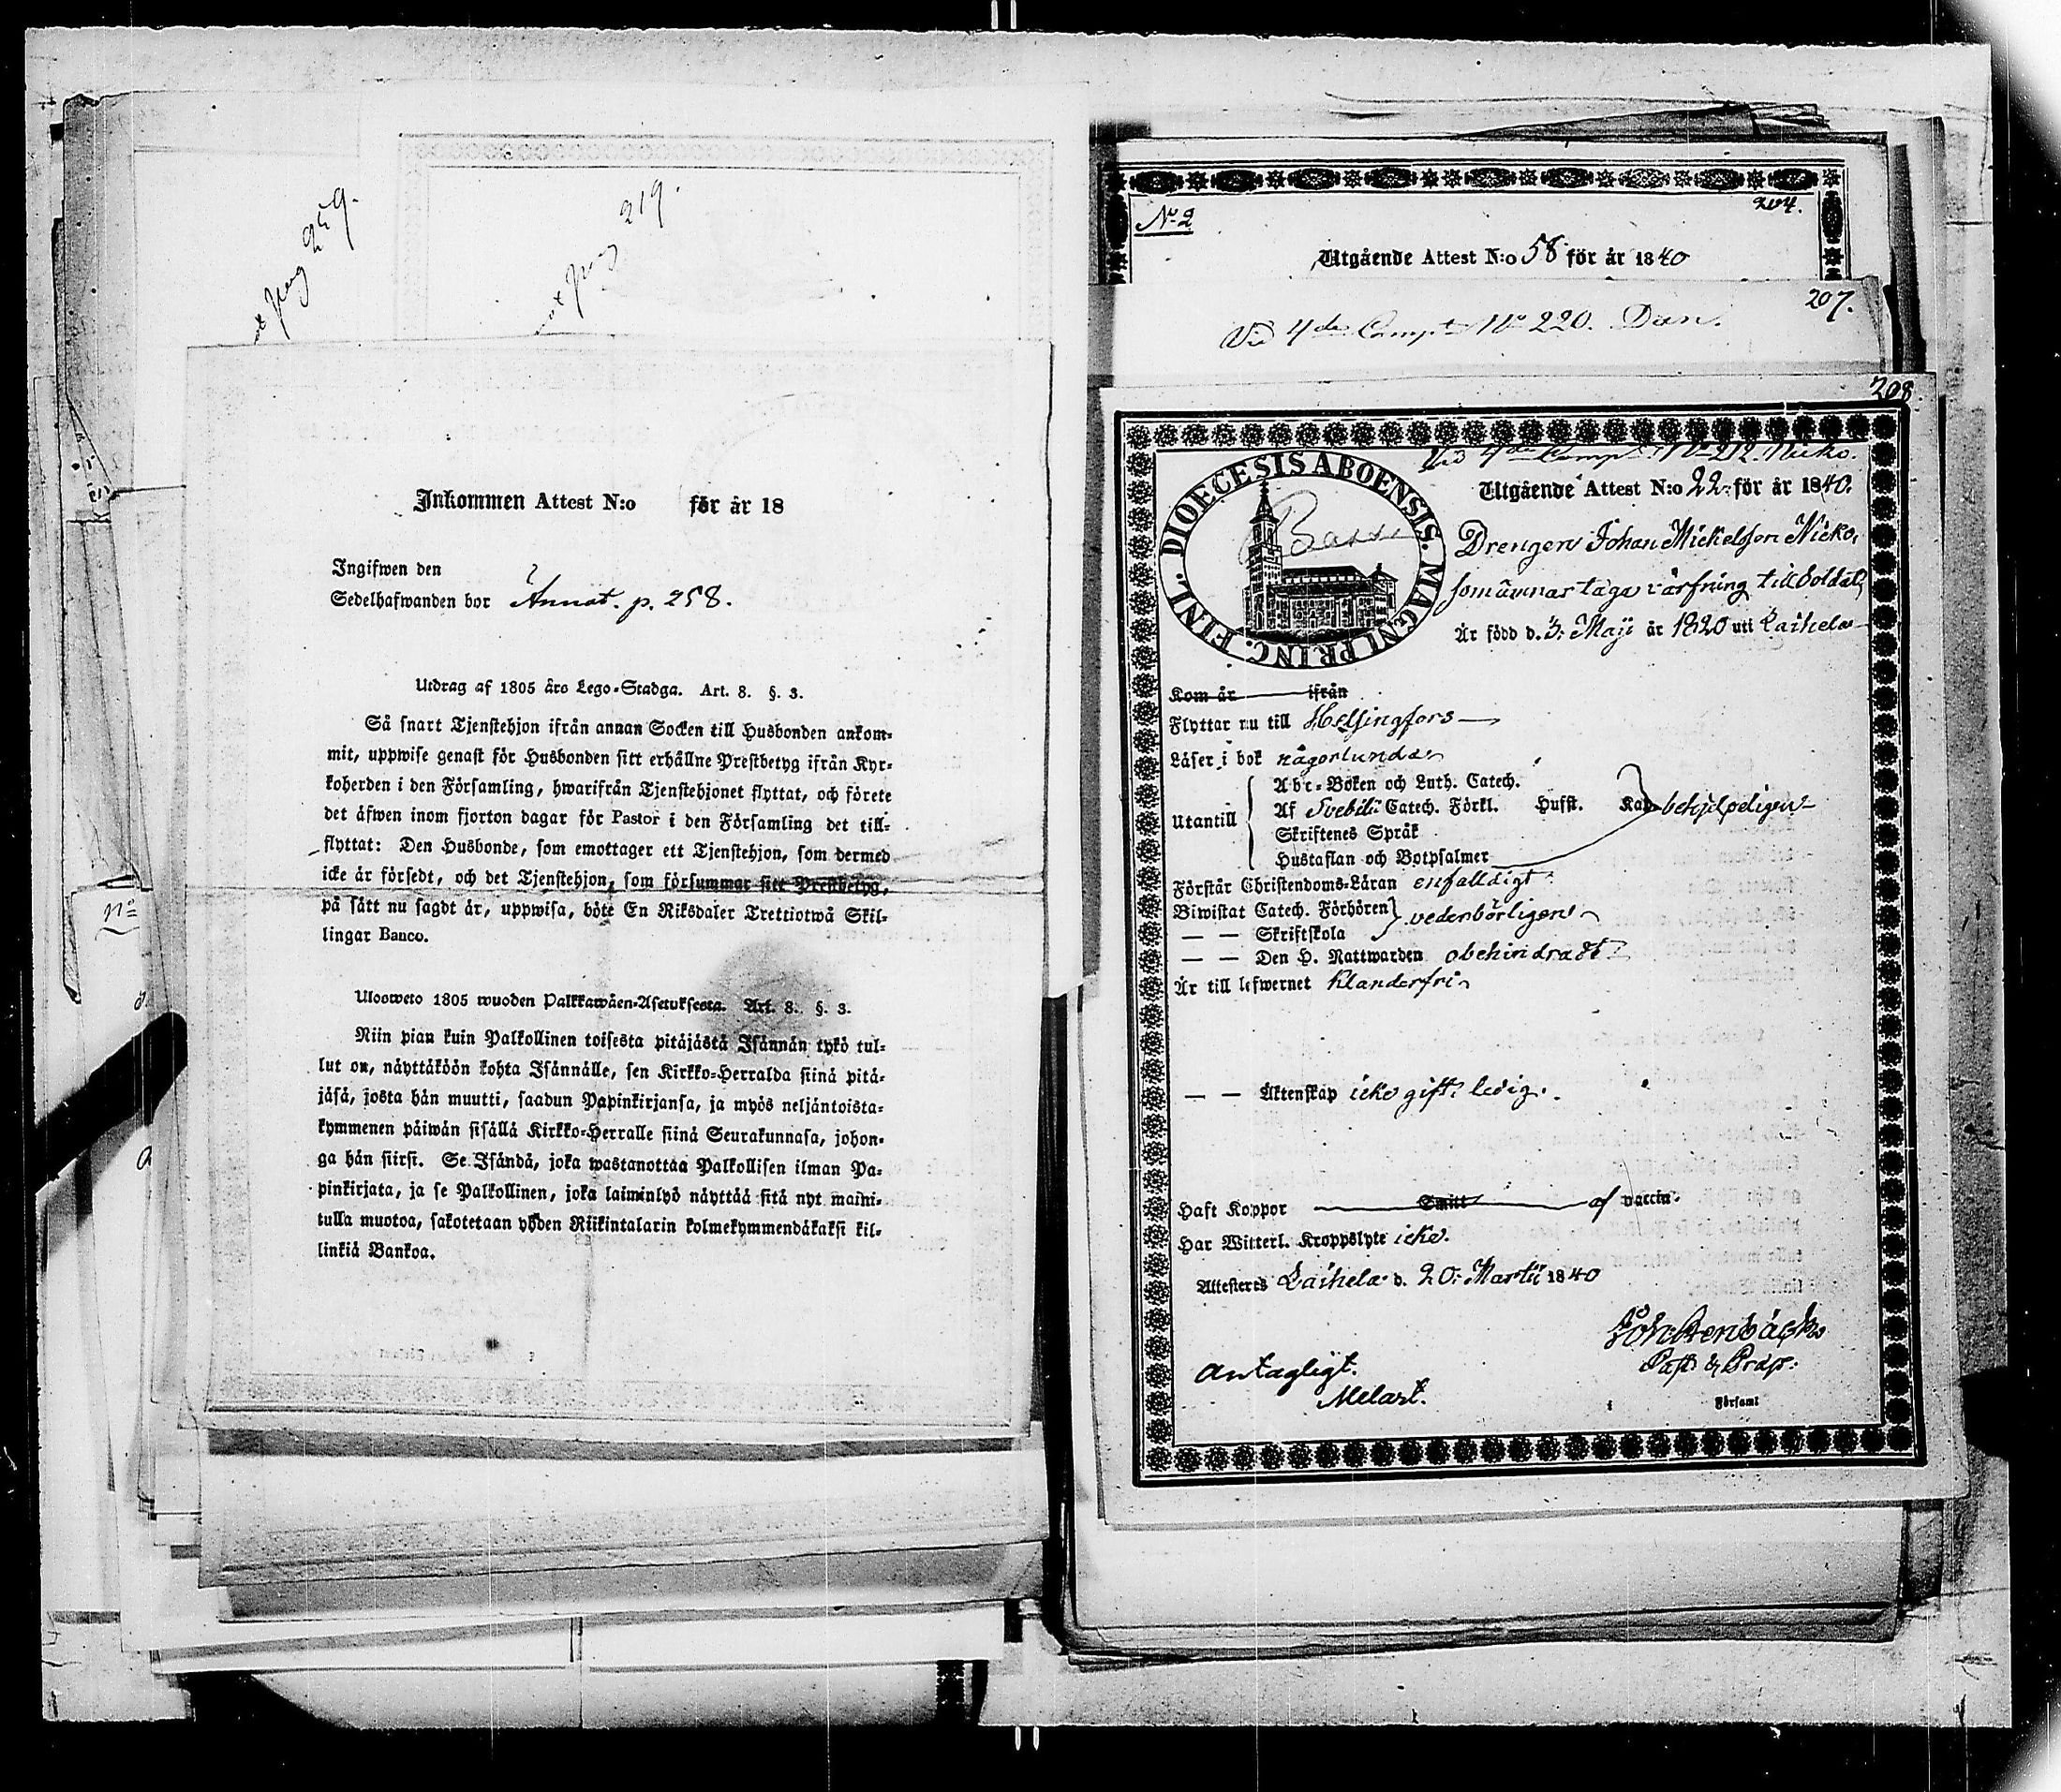 pag 259.
pag 219.
Inkommen Attest N:o för år 18
Ingifwen den
Sedelhafwanden bor Annot. p. 258.
Utdrag af 1805 års Lego-Stadga. Art. 8. §. 3.
Så snart Tjenstehjon ifrån annan Socken till Husbonden ankom-
mit, uppwise genast för Husbonden sitt erhållne Prestbetyg ifrån Kyr-
koherden i den Församling, hwarifrån Tjenstehjonet flyttat, och förete
det äfwen inom fjorton dagar för Pastor i den Församling det till-
flyttat: Den Husbonde, som emottager ett Tjenstehjon, som dermed
icke är försedt, och det Tjenstehjon, som försummar sitt Prestbetyg,
på sätt nu sagdt är, uppwisa, böte En Riksdaler Trettiotwå Skil-
lingar Banco.
Ulosweto 1805 wuoden Palkkawäen-Asetuksesta. Art. 8. §. 3.
Niin pian kuin Palkollinen toisesta pitäjästä Isännän tykö tul-
lut on, näyttäköön kohta Isännälle, sen Kirkko-Herralda siinä pitä-
jäsä, josta hän muutti, saadun Papinkirjansa, ja myös neljäntoista-
kymmenen päiwän sisällä Kirkko-Herralle siinä Seurakunnasa, johon-
ga hän siirsi. Se Isändä, joka wastanottaa Palkollisen ilman Pa-
pinkirjata, ja se Palkollinen, joka laiminlyö näyttää sitä nyt maini-
tulla muotoa, sakotetaan yhden Riikintalarin kolmekymmendäkaksi kil-
linkiä Bankoa.
No
No 2
204.
Utgående Attest N:o 58 för år 1840
207.
Vid 4de Comp. No 220. Dan.
208
Vid 4de Comp. No 212. Nicko.
DIOECESIS ABOENSIS. MAGNI PRINC. FINL.
Utgående Attest N:o 22 för år 1840.
Drengen Johan Mickelsson Nicko,
som ämnar taga värfning till Soldat,
Är född d. 3: Maji år 1820 uti Laihela
Kom år ifrån
Flyttar nu till Helsingfors
Läser i bok någorlunda
Utantill
Abc-Boken och Luth. Catech.
Af Svebilii Catech. Förkl. Husft. Kap behjelpeligen
Skriftenes Språk
Hustaflan och Botpsalmer
Förstår Christendoms-Läran enfalldigt
Biwistat Catech. Förhören vederbörligen
— — Skriftskola
— — Den H. Nattwarden obehindradt
Är till lefwernet klanderfri
— — Äktenskap icke gift, ledig.
Haft Koppor Smitt af vaccin.
Har Witterl. Kroppslyte icke.
Attesteres Laihela d. 20: Martii 1840
Joh: Stenbäck
Past: & Præp:
Antagligt.
Melart.
Församl